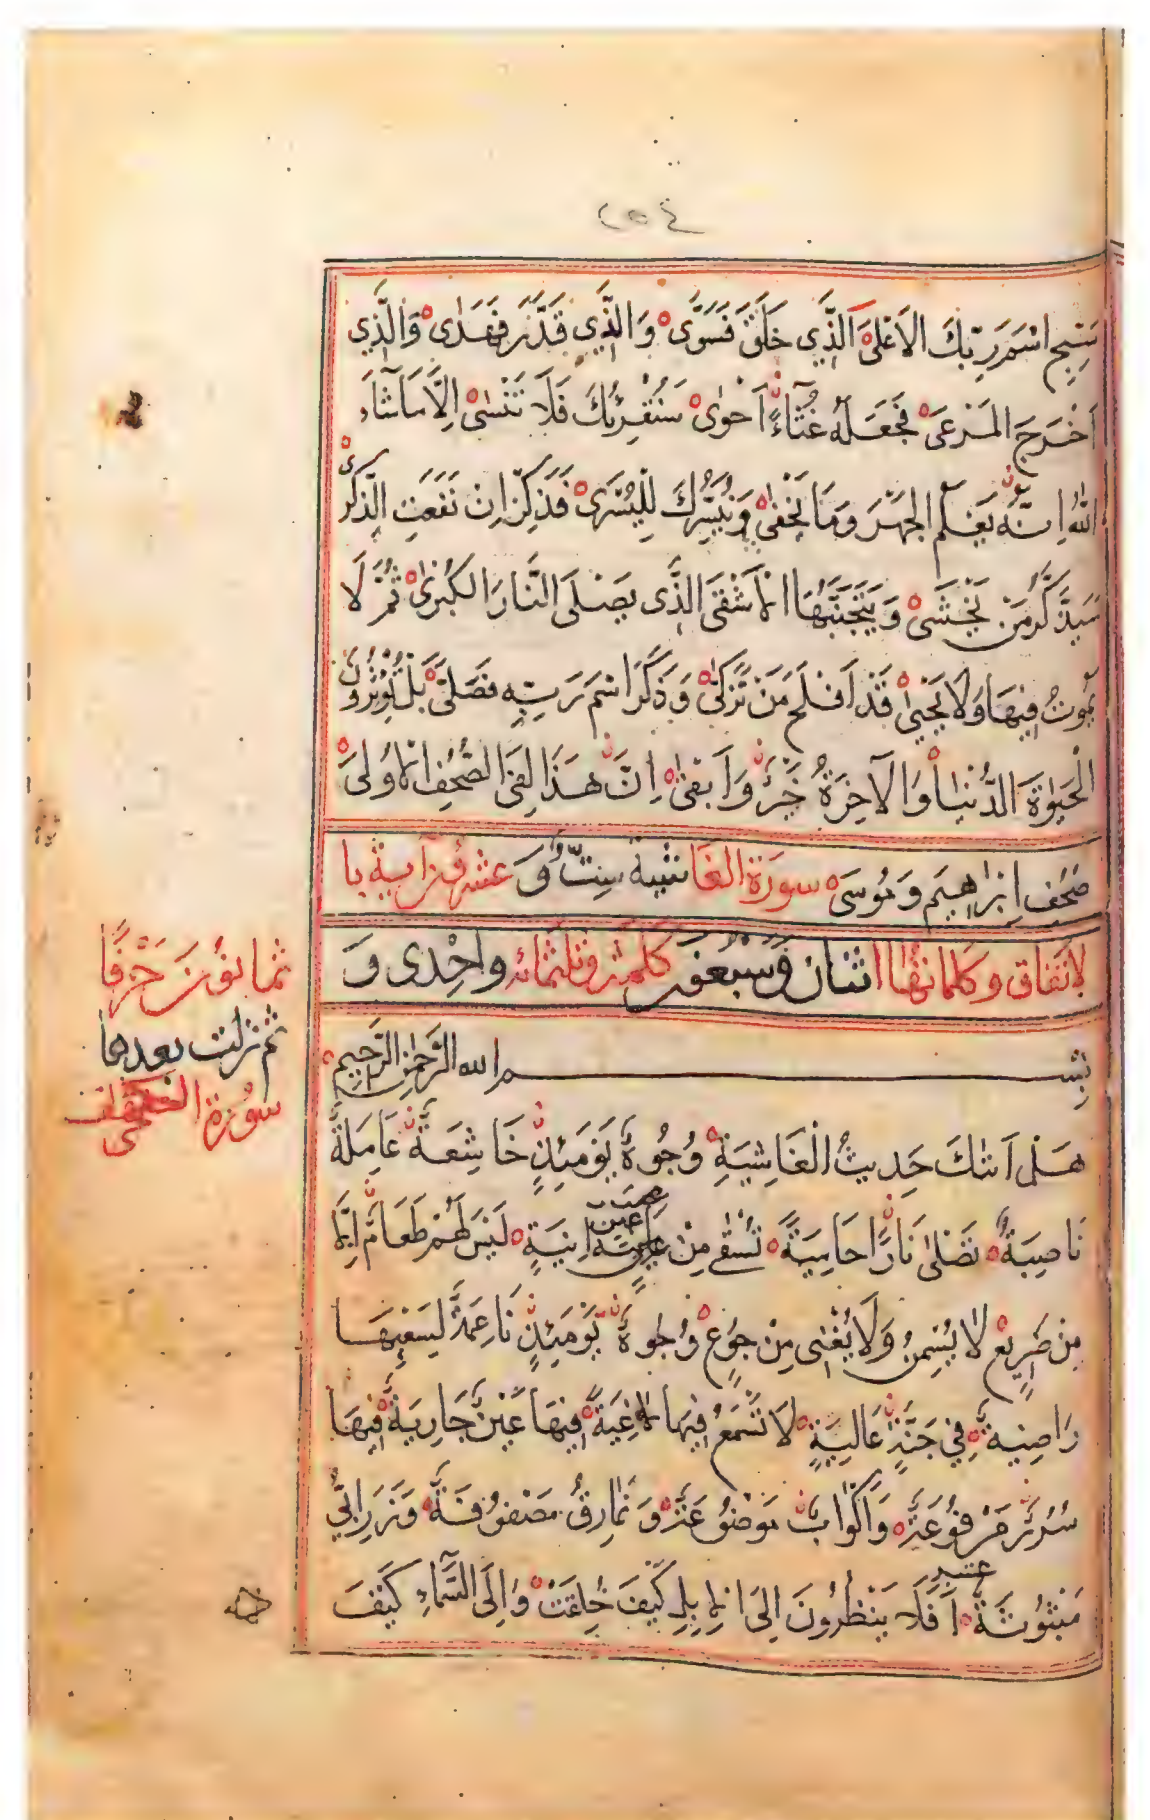 ٢٥٤
سَبِّحِ اسْمَ رَبِّكَ الاَعْلَىٰ الَّذِي خَلَقَ فَسَوَّىٰ وَالَّذِي قَدَّرَ فَهَدَىٰ وَالَّذِي
اَخْرَجَ المَرْعَىٰ فَجَعَلَهُ غُثَاءً اَحْوَىٰ سَنُقْرِئُكَ فَلَا تَنْسَىٰ اِلَّا مَا شَآءَ
اللهُ اِنَّهُ يَعْلَمُ الجَهْرَ وَمَا يَخْفَىٰ وَنُيَسِّرُكَ لِلْيُسْرَىٰ فَذَكِّرْ اِنْ نَفَعَتِ الذِّكْرَىٰ
سَيَذَّكَّرُ مَنْ يَخْشَىٰ وَيَتَجَنَّبُهَا الاَشْقَى الَّذِى يَصْلَى النَّارَ الكُبْرَىٰ ثُمَّ لَا
يَمُوتُ فِيهَا وَلَا يَحْيَىٰ قَدْ اَفْلَحَ مَنْ تَزَكَّىٰ وَذَكَرَ اسْمَ رَبِّهِ فَصَلَّىٰ بَلْ تُؤْثِرُونَ
الْحَيَوٰةَ الدُّنْيَا وَالآخِرَةُ خَيْرٌ وَاَبْقَىٰ اِنَّ هَذَا لَفِي الصُّحُفِ الاُولَىٰ
صُحُفِ اِبْرَاهِيمَ وَمُوسَىٰ سورة الغاشية ستّ و عشرون اية با
لاتفاق وكلماتها اثنان وسبعون كلمة وثلثمائه واحدى وَ
ثمانون حَرْفًا
ثم نزلت بعدها
سورة الكهف
بِسْمِ الله الرَّحْمٰنِ الرَّحِيمِ
هَلْ اَتٰكَ حَدِيثُ الْغَاشِيَةِ وُجُوهٌ يَوْمَئِذٍ خَاشِعَةٌ عَامِلَةٌ
نَاصِبَةٌ تَصْلَىٰ نَارًا حَامِيَةً تُسْقَىٰ مِنْ عَيْنٍ اٰنِيَةٍ لَيْسَ لَهُمْ طَعَامٌ اِلَّا
مِنْ ضَرِيعٍ لَا يُسْمِنُ وَلَا يُغْنِى مِنْ جُوعٍ وُجُوهٌ يَوْمَئِذٍ نَاعِمَةٌ لِسَعْيِهَا
رَاضِيَةٌ فِي جَنَّةٍ عَالِيَةٍ لَا تَسْمَعُ فِيهَا لَاغِيَةً فِيهَا عَيْنٌ جَارِيَةٌ فِيهَا
سُرُرٌ مَرْفُوعَةٌ وَاَكْوَابٌ مَوْضُوعَةٌ وَنَمَارِقُ مَصْفُوفَةٌ وَزَرَابِيُّ
مَبْثُوثَةٌ اَفَلَا يَنْظُرُونَ اِلَى الاِبِلِ كَيْفَ خُلِقَتْ وَاِلَى السَّمَآءِ كَيْفَ